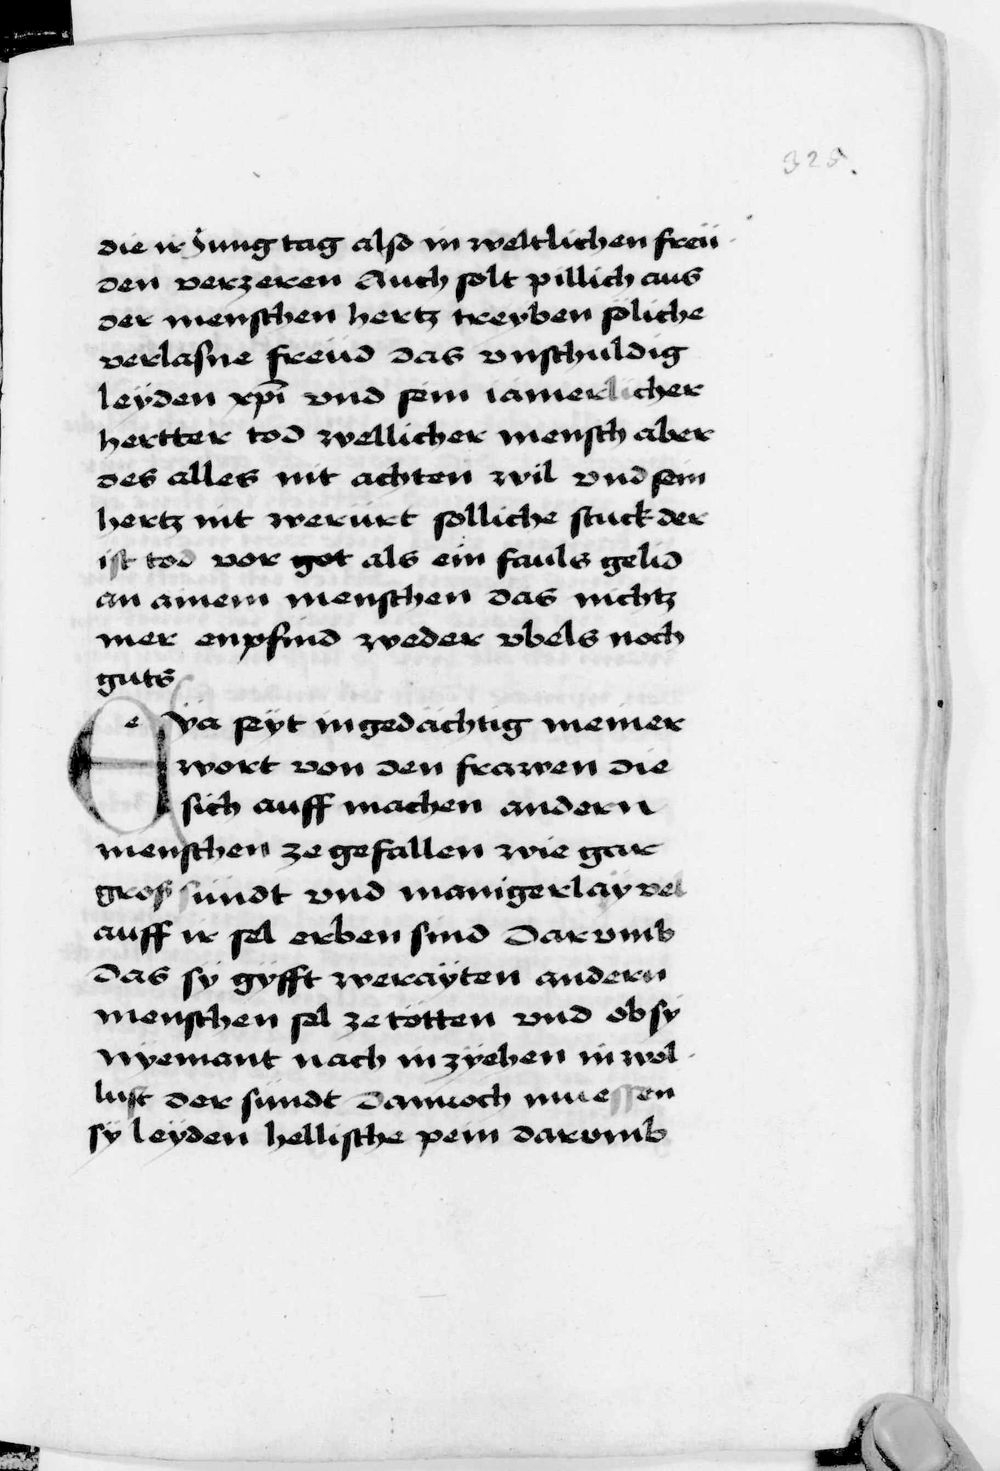 325.
die ir Jung tag also in weltlichen freü
den verzeren Auch solt pillich aus
der menschen hertz treyben söliche
verlasne freüd das vnschuldig
leÿden xpi vnd sein iamerlicher
hertter tod wellicher mensch aber
des alles nit achten wil vnd sein
hertz nit werürt solliche stuck der
ist tod vor got als ein fauls gelid
an ainem menschen das nichtz
mer enpfind weder vbels noch
guts
Eÿa seÿt ingedächtig meiner
wort von den frawen die
sich auff machen andern
menschen ze gefallen wie gar
groß sündt vnd manigerlaÿ vel
auff ir sel erben sind Dar vmb
das sÿ gÿfft weraÿten andern
menschen sel ze tötten vnd ob sÿ
nÿemant nach in zÿehen in wol
lust der sündt dannoch muessen
sÿ leÿden hellische pein darvmb